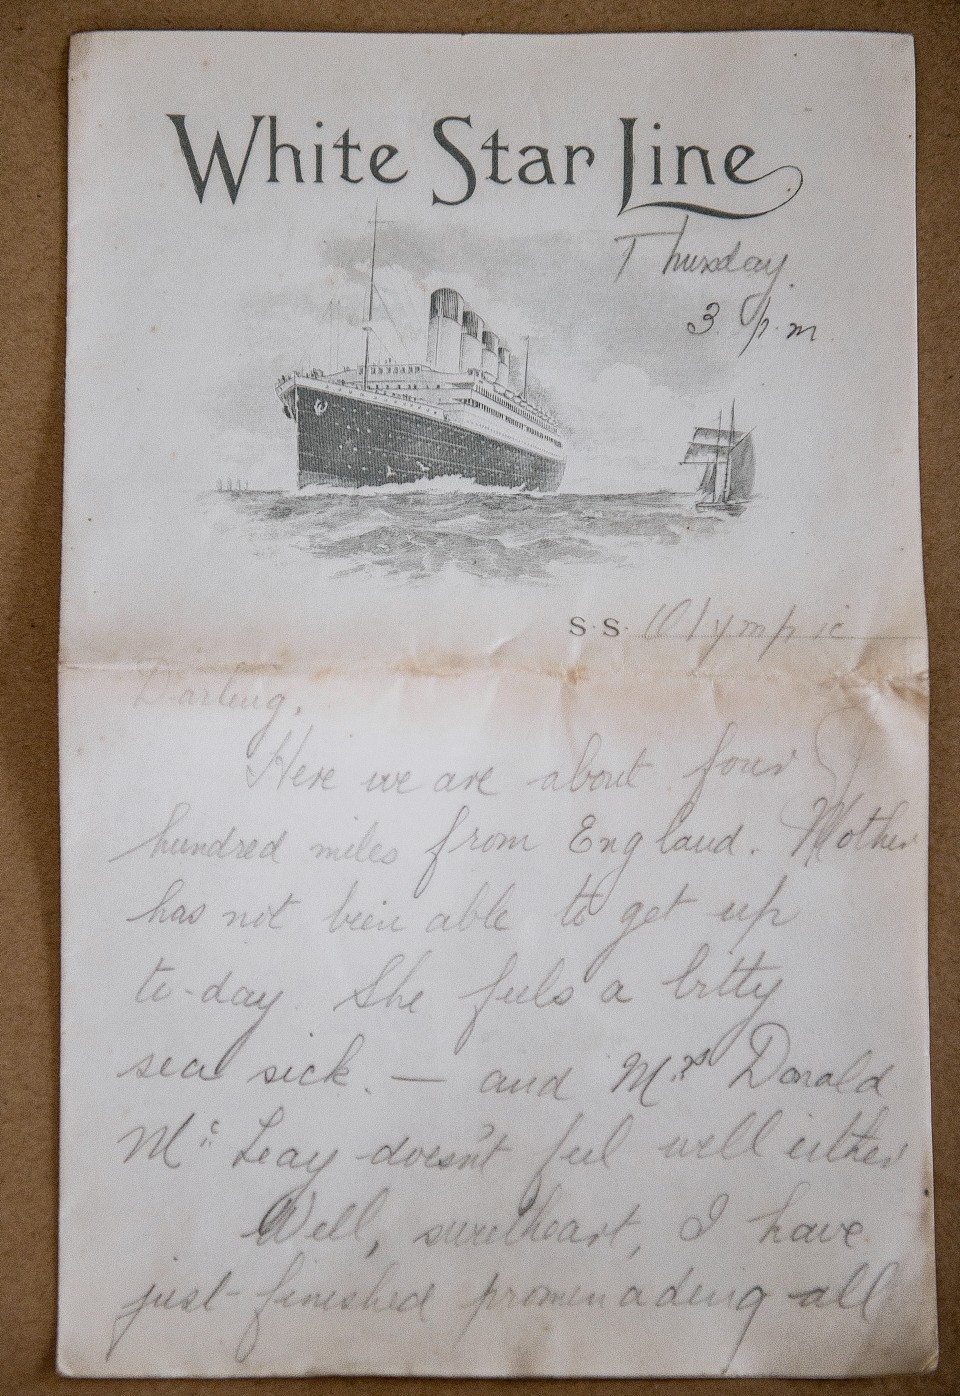 White Star Line
Thursday
3 p.m
S.S. Olympic
Darling,
Here we are about four
hundred miles from England. Mother
has not been able to get up
to-day. She feels a bitty
sea sick. — and Mrs Donald
Mc Leay doesn't feel well either
Well, sweetheart, I have
just finished promenading all